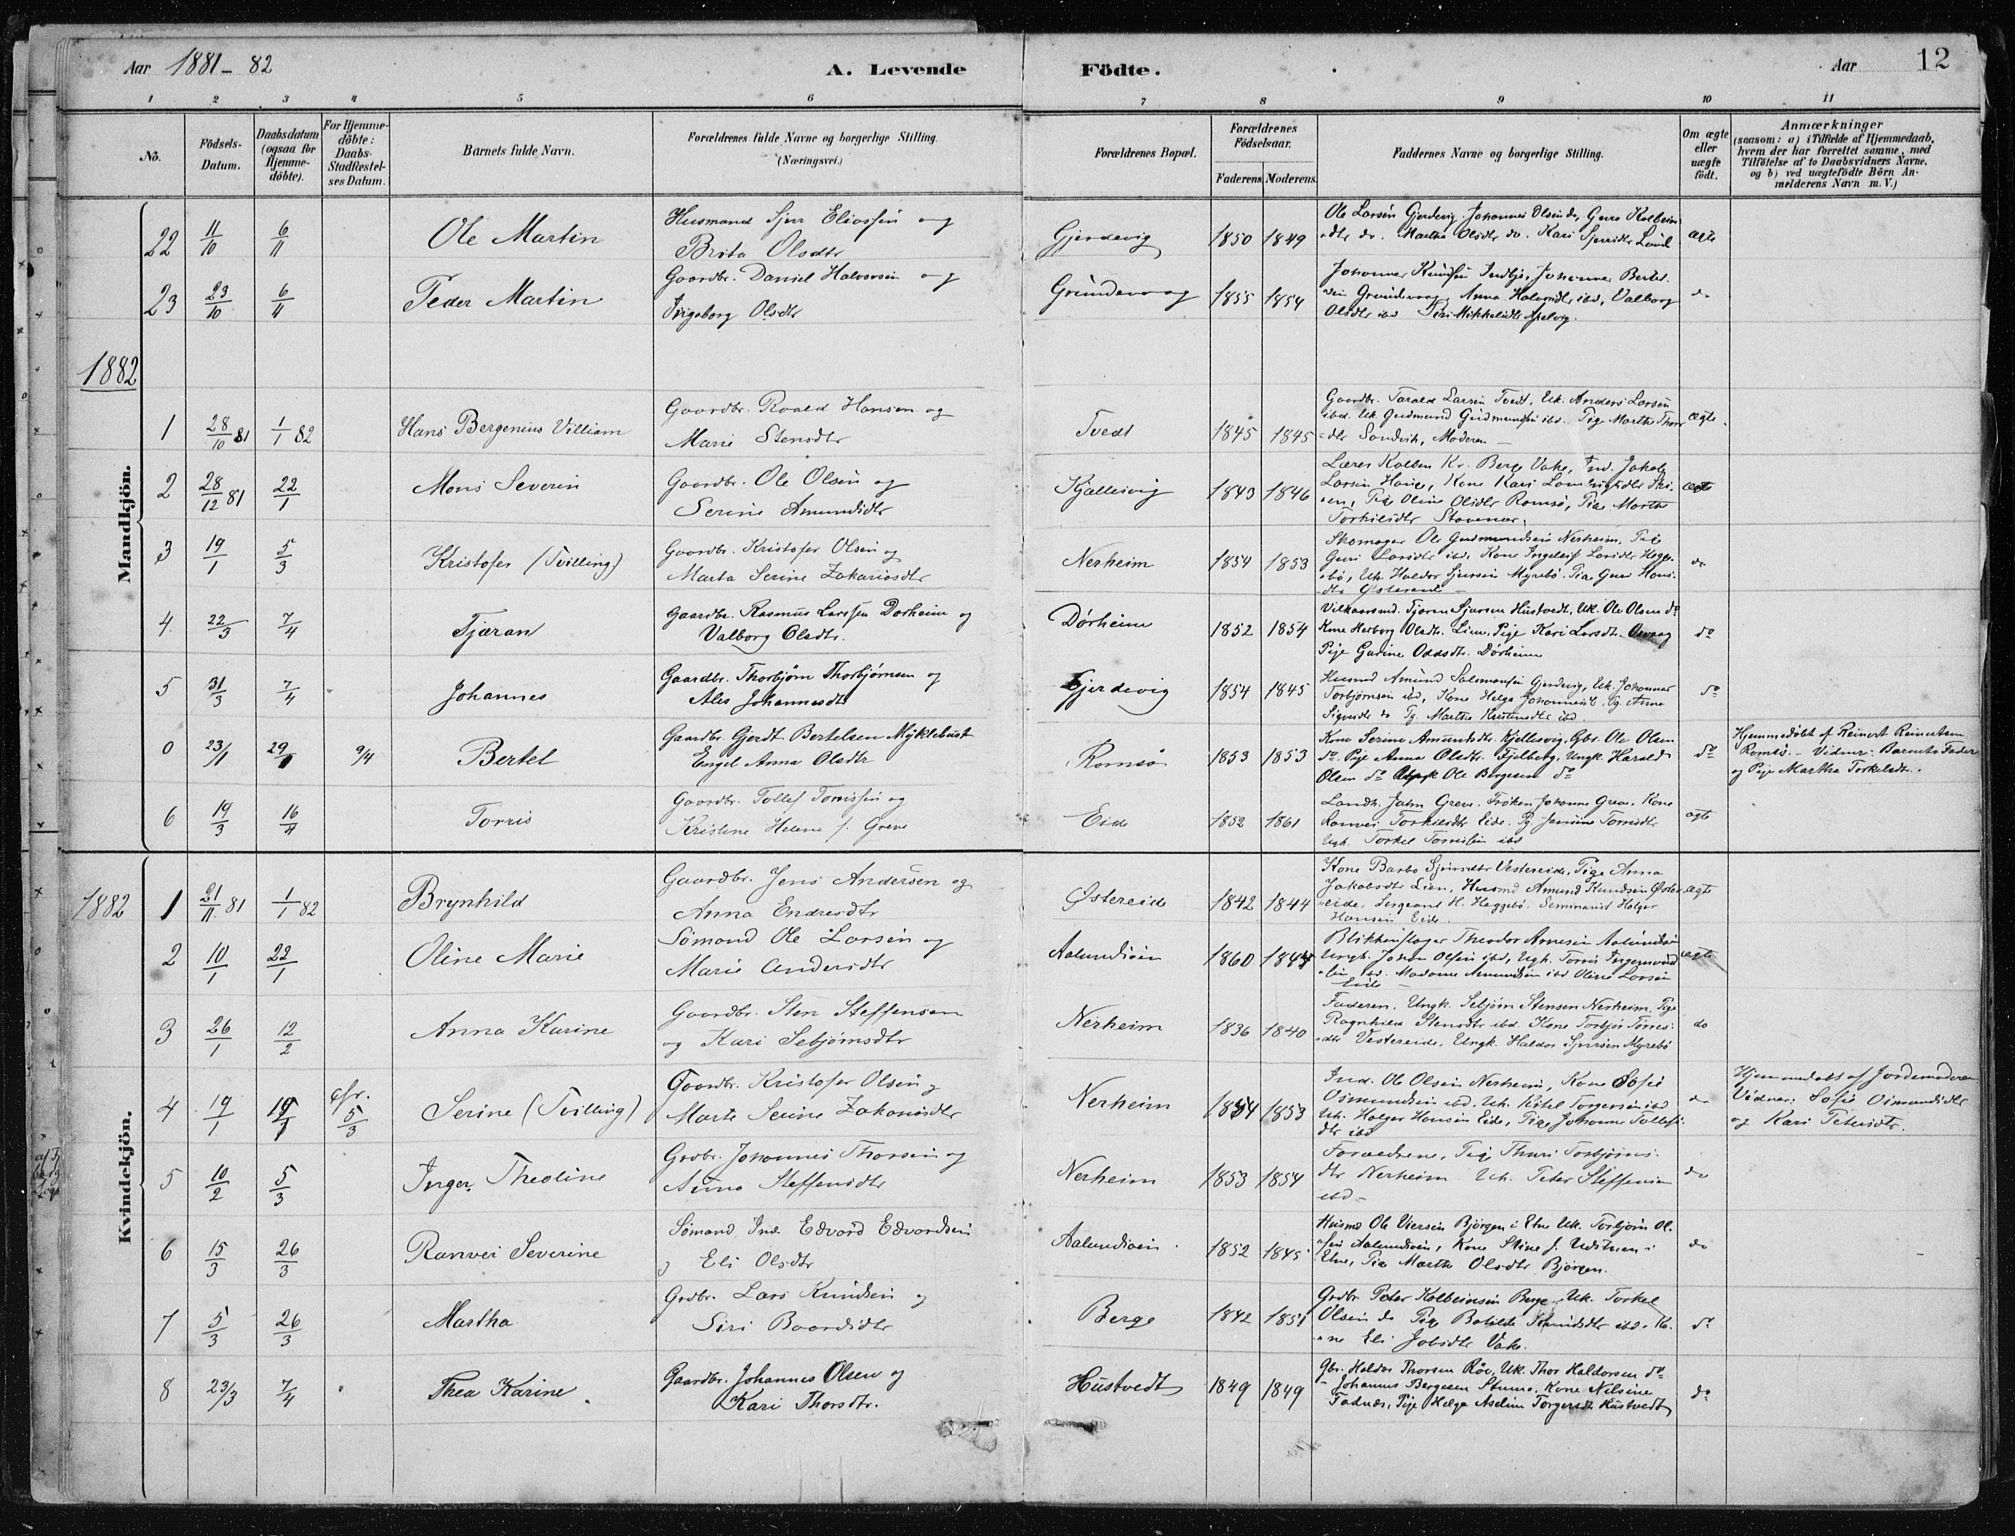 Aar 1881-82
A. Levende
Födte.
Aar
12
1 2 3 4 5 6 7 8 9 10 11
No.
Födsels-Datum.
Daabsdatum (ogsaa for Hjemme-döbte).
For Hjemme-döbte: Daabs-Stadfæstel-ses Datum.
Barnets fulde Navn.
Forældrenes fulde Navne og borgerlige Stilling. (Næringsvei.)
Forældrenes Bopæl.
Forældrenes Födselsaar.
Faderens Moderens
Faddernes Navne og borgerlige Stilling.
Om ægte eller uægte födt.
Anmærkninger
(saasom: a) i Tilfælde af Hjemmedaab,
hvem der har forrettet samme, med
Tilföielse af to Daabsvidners Navne,
og b) ved uægtefödte Börn An-
melderens Navn m. V.)
22 11/10 6/11 Ole Martin
Husmand Sjur Eliassen og
Brita Olsdtr
Gjerdevig 1850 1849
Ole Larsen Gjerdevig, Johannes Olsen do,
do. Martha Olsdtr do. Kari
ægte
23 23/10 6/4 Peder Martin
Gaardbr. Daniel Halvorsen og
Ingeborg Olsdtr
Grundevaag 1855 1854
Johannes Knudsen Johannes Bertel-
sen Grundevaag, Anna ibd, Valborg
Olsdtr ibd Siri Mikkelsdtr Apelvig.
do
1882
Mandkjön.
1 28/10 81 1/1 82 Hans Bergenius Villiam
Gaardbr. Roald Hansen og
Marie Stensdtr
Tvedt 1845 1845
Gaardbr. Tarald Larsen Tvedt, Uk. Anders Larsen
ibd. Uk Gudmund Gudmundsen ibd. Pige Martha Thors-
dtr Sandvik, Moderen
ægte
2 28/12 81 22/1 Mons Severin
Gaardbr. Ole Olsen og
Serine Amundsdtr
Kjallesvig 1843 1846
Lærer Kolben Kr. Berge Vake, Ind. Jakob
Larsen Kone Kari
Pige Oline Olsdtr Romsø, Pige Martha
Torkilsdtr
ægte
3 19/1 5/3 Kristofer (Tvilling)
Gaardbr. Kristofer Olsen og
Marta Serine Zakariasdtr
Nerheim 1854 1853
Skomager Ole Gudmundsen Nerheim, Pige
Guri Larsdtr ibd, Kone Ingeleif Larsdtr Hegge-
bø, Uk. Haldor Sjursen Myrebø. Pige Guri Hans-
dtr Østereide
do
4 22/3 7/4 Tjæran
Gaardbr. Rasmus Larsen Dørheim og
Valborg Olsdtr.
Dørheim 1852 1854
Vilkaarsmd. Tjæran Sjursen Hustvedt, Uk. Ole Olsen do
Kone Herborg Olsdtr. Lien, Pige Kari Larsdtr.
Pige Gurine Oddsdtr. Dørheim
do
5 31/3 7/4 Johannes
Gaardbr. Thorbjørn Thorbjørnsen og
Ales Johannesdtr
Gjerdevig 1854 1845
Husmd Amund Salamonsen Gjerdevig, Uk. Johannes
Torbjørnsen ibd, Kone Helga Johannesd. Pg. Anna
Sigvesdtr do Pg. Martha Kristensdtr ibd.
do
0 23/1 29/1 9/4 Bertel
Gaardbr. Gjerdt Bertelsen Myklebust
Engel Anna Olsdtr
Romsø 1853 1853
Kone Serine Amundsdtr. Kjellesvig, Gbr. Ole Olsen
do. Pige Anna Olsdtr. Fjelberg, Ungk. Harald
Olsen do Ole Børgesen do
do
Hjemmedøbt af Reinert Reinertsen
Romsø. - Vidner: Barnets Fader
og Pige Martha Torkelsdtr.
6 19/3 16/4 Torris
Gaardbr. Tollef Torrissen og
Kristine Helene f. Greve
Eide 1852 1861
Landh. Jahn Greve. Frøken Johanne Greve, Kone
Ranvei Torkilsdtr Eide. Pg. Torrisdtr
Ugk. Torkel Torrissen ibd
ægte
1882
Kvindekjön.
1 21/11 81 1/1 82 Brynhild
Gaardbr. Jens Andersen og
Anna Endresdtr
Østereide 1842 1844
Kone Barbo Sjursdtr Vestereide, Pige Anna
Jakobsdtr Lien, Husmd Amund Knudsen Øster-
eide, Sergeant H. Heggebø. Seminarist Holger
Hansen Eide.
ægte
2 10/1 22/1 Oline Marie
Sømand Ole Larsen og
Marie Andersdtr
Aalundøen 1860 1844
Blikkenslager Theodor Arnesen Aalundøen
Ungk. Johan Olsen ibd, Ugk. Torris
ibd. Madame Amundsen ibd Oline Larsen
Eide
ægte
3 26/1 12/2 Anna Karine
Gaardbr. Sten Steffensen
og Kari Sebjørnsdtr
Nerheim 1836 1840
Faderen, Ungk. Sebjørn Stensen Nerheim, Pige
Ragnhild Stensdtr ibd. Kone Torbjør Torres-
dtr Vestereide, Ungk. Haldor Sjursen Myrebø
do
4 19/1 19/1 cfr. 5/3 Serine (Tvilling)
Gaardbr. Kristofer Olsen og
Marte Serine Zakariasdtr
Nerheim 1854 1853
Ind. Ole Olsen Nerheim, Kone Sofie
Osmundsen ibd, Uk. Ketel Torgersen ibd
Uk. Holger Hansen Eide, Pige Johanne Tollefs-
dtr ibd
do
Hjemmedøbt af Jordemoderen
Vidner: Sofie Osmundsdtr
og Kari Petersdtr.
5 10/2 5/3 Inger Theoline
Grdbr. Johannes Thorsen og
Anna Steffensdtr
Nerheim 1853 1854
Forældrene, Pige Thuri Torbjørns-
dtr Nerheim. Uk. Peter Steffensen
ibd
do
6 15/3 26/3 Ranvei Severine
Sømand Ind. Edvard Edvardsen
og Eli Olsdtr
Aalundøen 1852 1845
Husmd Ole Viersen Bjørgen i Etne Uk. Torbjørn Ol-
sen Aalundøen, Kone Stine J. i
Etne, Pige Martha Olsdtr Bjørgen.
do
7 5/3 26/3 Martha
Grdbr. Lars Knudsen og
Siri Baardsdtr
Berge 1842 1851
Grdbr. Peter Kolbeinsen Berge. Uk. Torkel
Olsen do Pige Bothilde Knudsdtr ibd. Ko-
ne Eli Jobsdtr Vake.
do
8 23/3 7/4 Thea Karine
Gaardbr. Johannes Olsen og
Kari Thorsdtr.
Hustvedt 1849 1849
Gbr. Haldor Thorsen Røe, Uk. Thor Haldorsen do
Johannes Børgesen Stumo, Kone Nilsine
Fadnæs, Pige Helga Aselin Torgersdtr Hustvedt
do